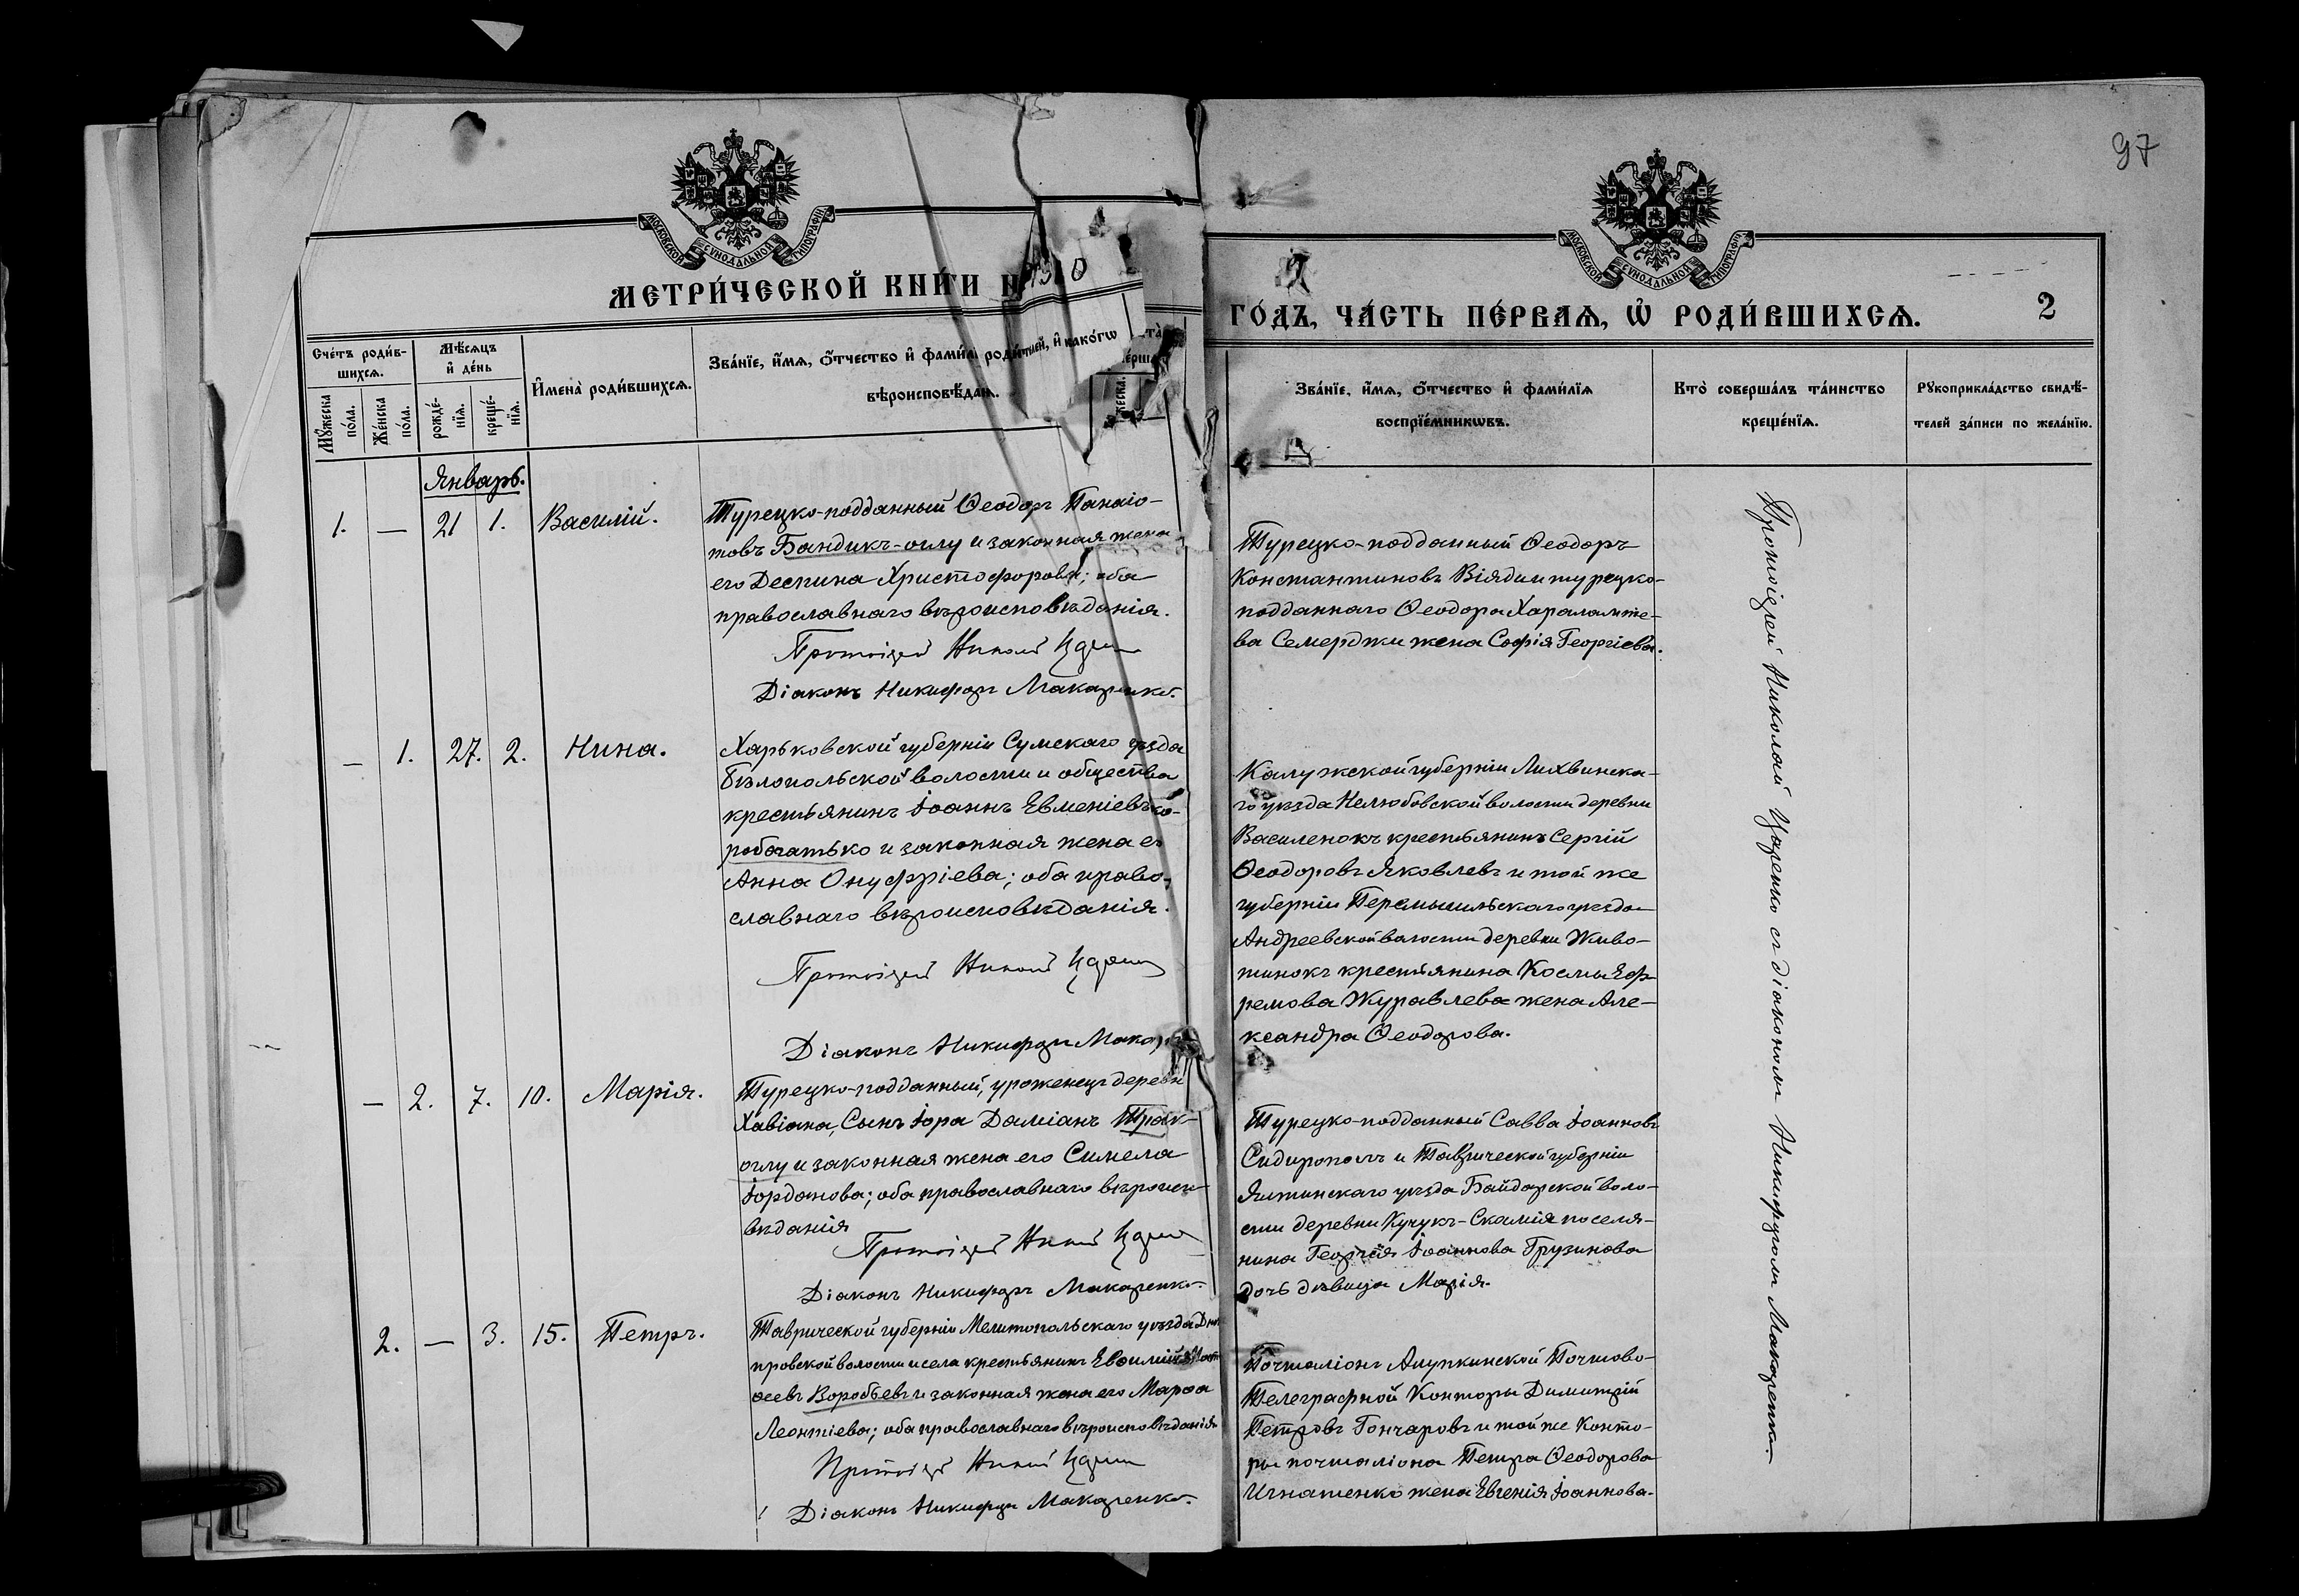 97
МОСКОВСКОЙ СѴНОДАЛЬНОЙ ТИПОГРАФІИ
МОСКОВСКОЙ СѴНОДАЛЬНОЙ ТИПОГРАФІИ
МЕТРИ́ЧЕСКОЙ КНИ́ГИ
ГО́ДЪ, ЧА́СТЬ ПЕ́РВАЯ, Ѡ҆ РОДИ́ВШИХСЯ.
2
Сче́тъ роди́в-
шихся.
Мꙋ́жеска
по́ла.
Же́нска
по́ла.
Мѣ́сяцъ
и҆ де́нь
рожде́-
нїя.
креще́-
нїя.
И҆мена̀ роди́вшихся.
Зва́нїе, и҆́мя, ѻ҆́тчество и҆ фами́лї роди́телей, и҆ како́гѡ
вѣроисповѣ́данї.
Зва́нїе, и҆́мя, ѻ҆́тчество и҆ фами́лїя
воспрїе́мникѡвъ.
Кто̀ соверша́лъ та́инство
креще́нїя.
Рꙋкоприкла́дство свидѣ́-
телей за́писи по жела́нїю.
Январь.
1. — 21 1. Василій.
Турецко-подданный Ѳеодоръ Панаіо-
товъ Бандикъ-оглу и законная жена
его Деспина Христофорова; оба
православнаго вѣроисповѣданія.
Протоіерей Николай Царенко
Діаконъ Никифоръ Макаренко.
Турецко-подданный Ѳеодоръ
Константиновъ Віяди и турецко-
подданнаго Ѳеодора Харалампе-
ва Семерджи жена Софія Георгіева.
— 1. 27. 2. Нина.
Харьковской губерніи Сумскаго уѣзда
Бѣлопольской волости и общества
крестьянинъ Іоаннъ Евменіевъ Ко-
робчатько и законная жена ег
Анна Онуфріева; оба право-
славнаго вѣроисповѣданія.
Протоіерей Николай Царенко
Діаконъ Никифоръ Макар
Калужской губерніи Лихвинска-
го уѣзда Нелюбовской волости деревни
Василенокъ крестьянинъ Сергій
Ѳеодоровъ Яковлевъ и той же
губерніи Перемышльскаго уѣзда
Андреевской волости деревни Живо-
тинокъ крестьянина Космы Еф-
ремова Журавлева жена Але-
ксандра Ѳеодорова.
— 2. 7. 10. Марія.
Турецко-подданный, уроженецъ деревн
Хавіана, Сынъ Іора Даміанъ Трак-
оглу и законная жена его Симела
Іорданова; оба православнаго вѣроиспо-
вѣданія
Протоіерей Николай Царенко
Діаконъ Никифоръ Макаренко.
Турецко-подданный Савва Іоанновъ
Сидиропол и Таврической губерніи
Ялтинскаго уѣзда Байдарской воло-
сти деревни Кучукъ-Скамія поселя-
нина Георгія Іоаннова Грузинова
дочь дѣвица Марія.
2. — 3. 15. Петръ.
Таврической губерніи Мелитопольскаго уѣзда Днѣ
провской волости и села крестьянинъ Евѳимій
ѳеевъ Воробьевъ и законная жена его Марѳа
Леонтіева; оба православнаго вѣроисповѣданія
Протоіерей Николай Царенко
Діаконъ Никифоръ Макаренко.
Почталіонъ Алупкинской Почтово-
Телеграфной Конторы Димитрій
Петровъ Гончаровъ и той же Конто-
ры почталіона Петра Ѳеодорова
Игнатенко жена Евгенія Іоаннова.
Протоіерей Николай Царенко съ діакономъ Никифоромъ Макаренко.